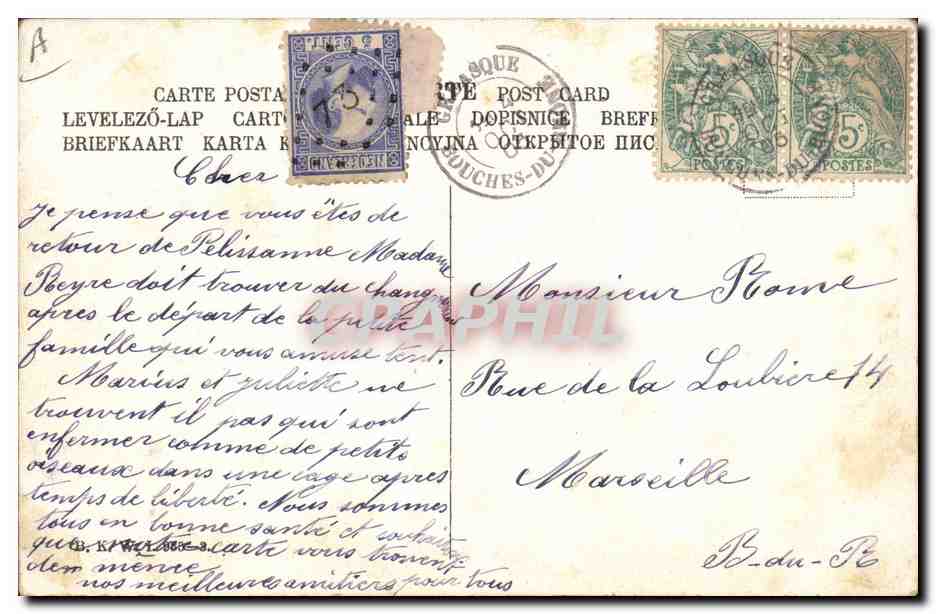 A
CARTE POSTA RTE POST CARD
LEVELEZŐ-LAP CARTO ALE DOPISNICE BREF
BRIEFKAART KARTA K NCYJNA ОТКРЫТОЕ ПИС
5 CENT.
73
NEDERLAND
GREASQUE
BOUCHES-DU-RHONE
5c 5c
POSTES POSTES
Cher
Je pense que vous êtes de
retour de Pelissanne Madame
Reyre doit trouver du changement
apres le départ de la petite
famille qui vous amuse tent.
Marius et Juliette ne
trouvent il pas qui sont
enfermer comme de petits
oiseaux dans une cage apres
temps de liberté. Nous sommes
tous en bonne santé et souhaitons
que notre carte vous trouvent
de meme
nos meilleures amitiers pour tous
Monsieur Rome
Rue de la Loubiere 14
Marseille
B-du-R
CPAPHIL